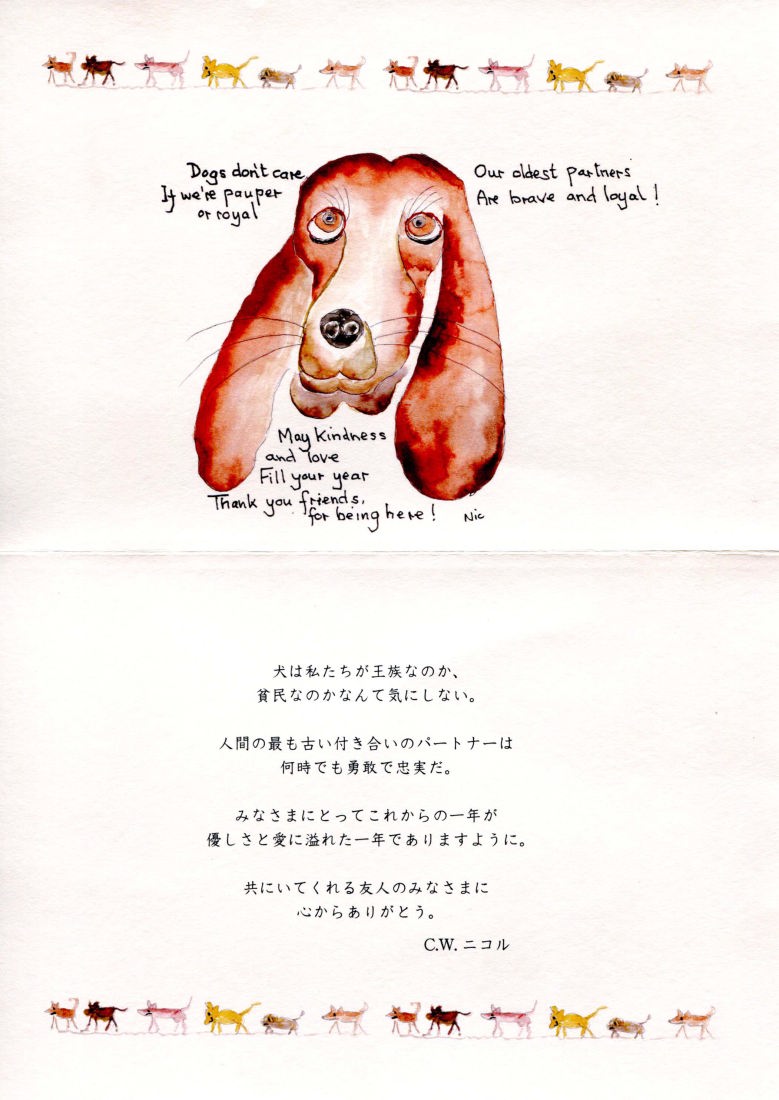 Dogs don't care
If we're pauper
or royal
Our oldest partners
Are brave and loyal!
May kindness
and love
Fill your year
Thank you friends,
for being here!
Nic
犬は私たちが王族なのか、
貧民なのかなんて気にしない。
人間の最も古い付き合いのパートナーは
何時でも勇敢で忠実だ。
みなさまにとってこれからの一年が
優しさと愛に溢れた一年でありますように。
共にいてくれる友人のみなさまに
心からありがとう。
C.W. ニコル